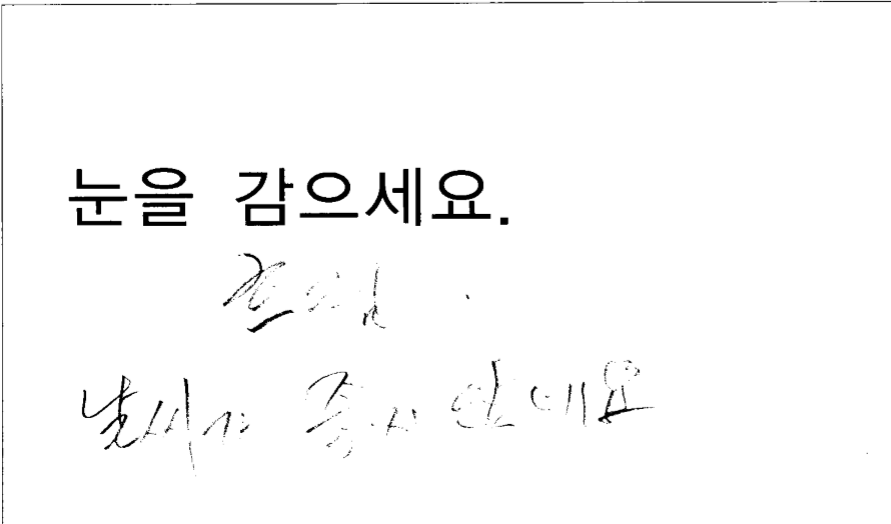 눈을 감으세요.
날씨가 좋지 않네요